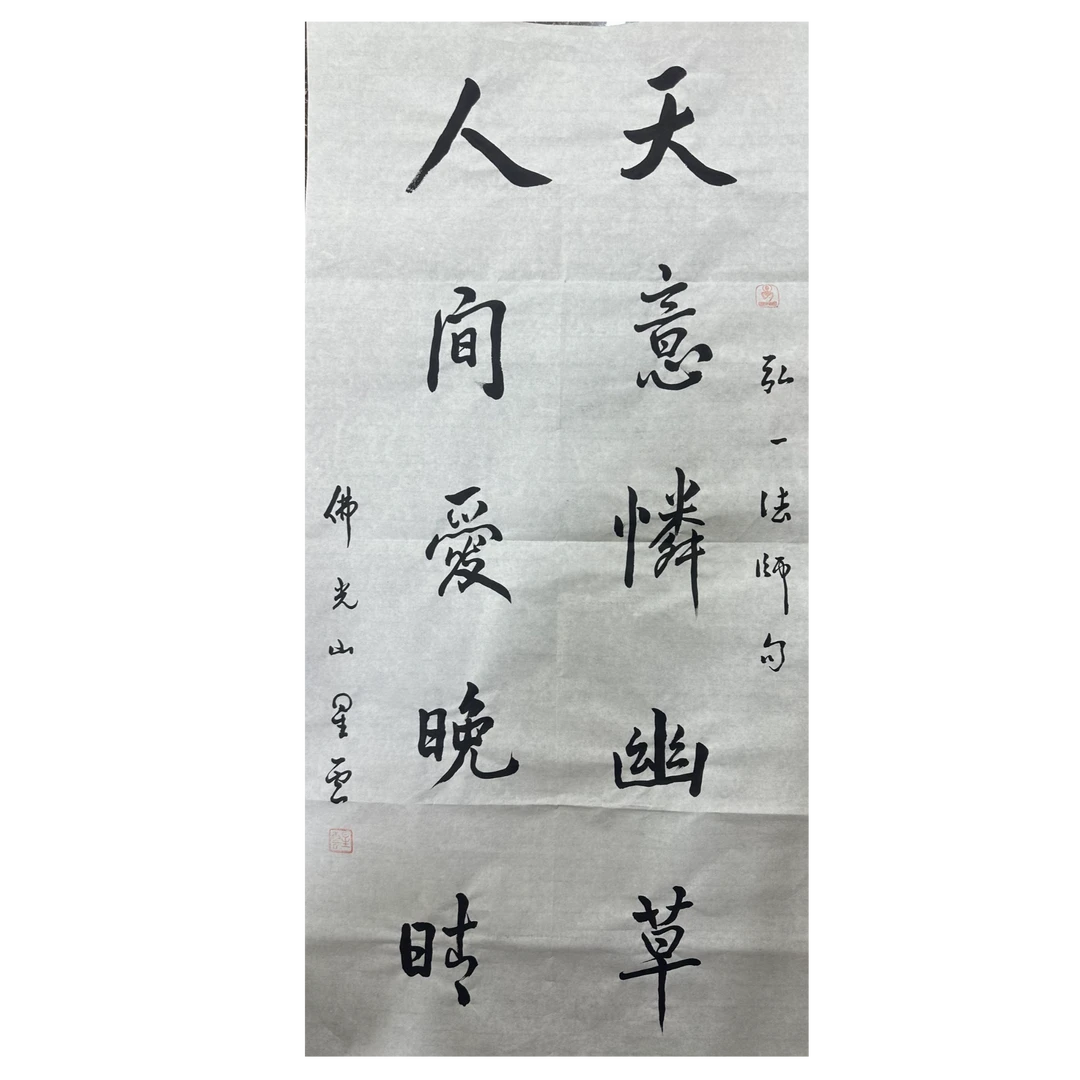 弘一法師句
天意憐幽草
人间愛晚晴
佛光山星雲